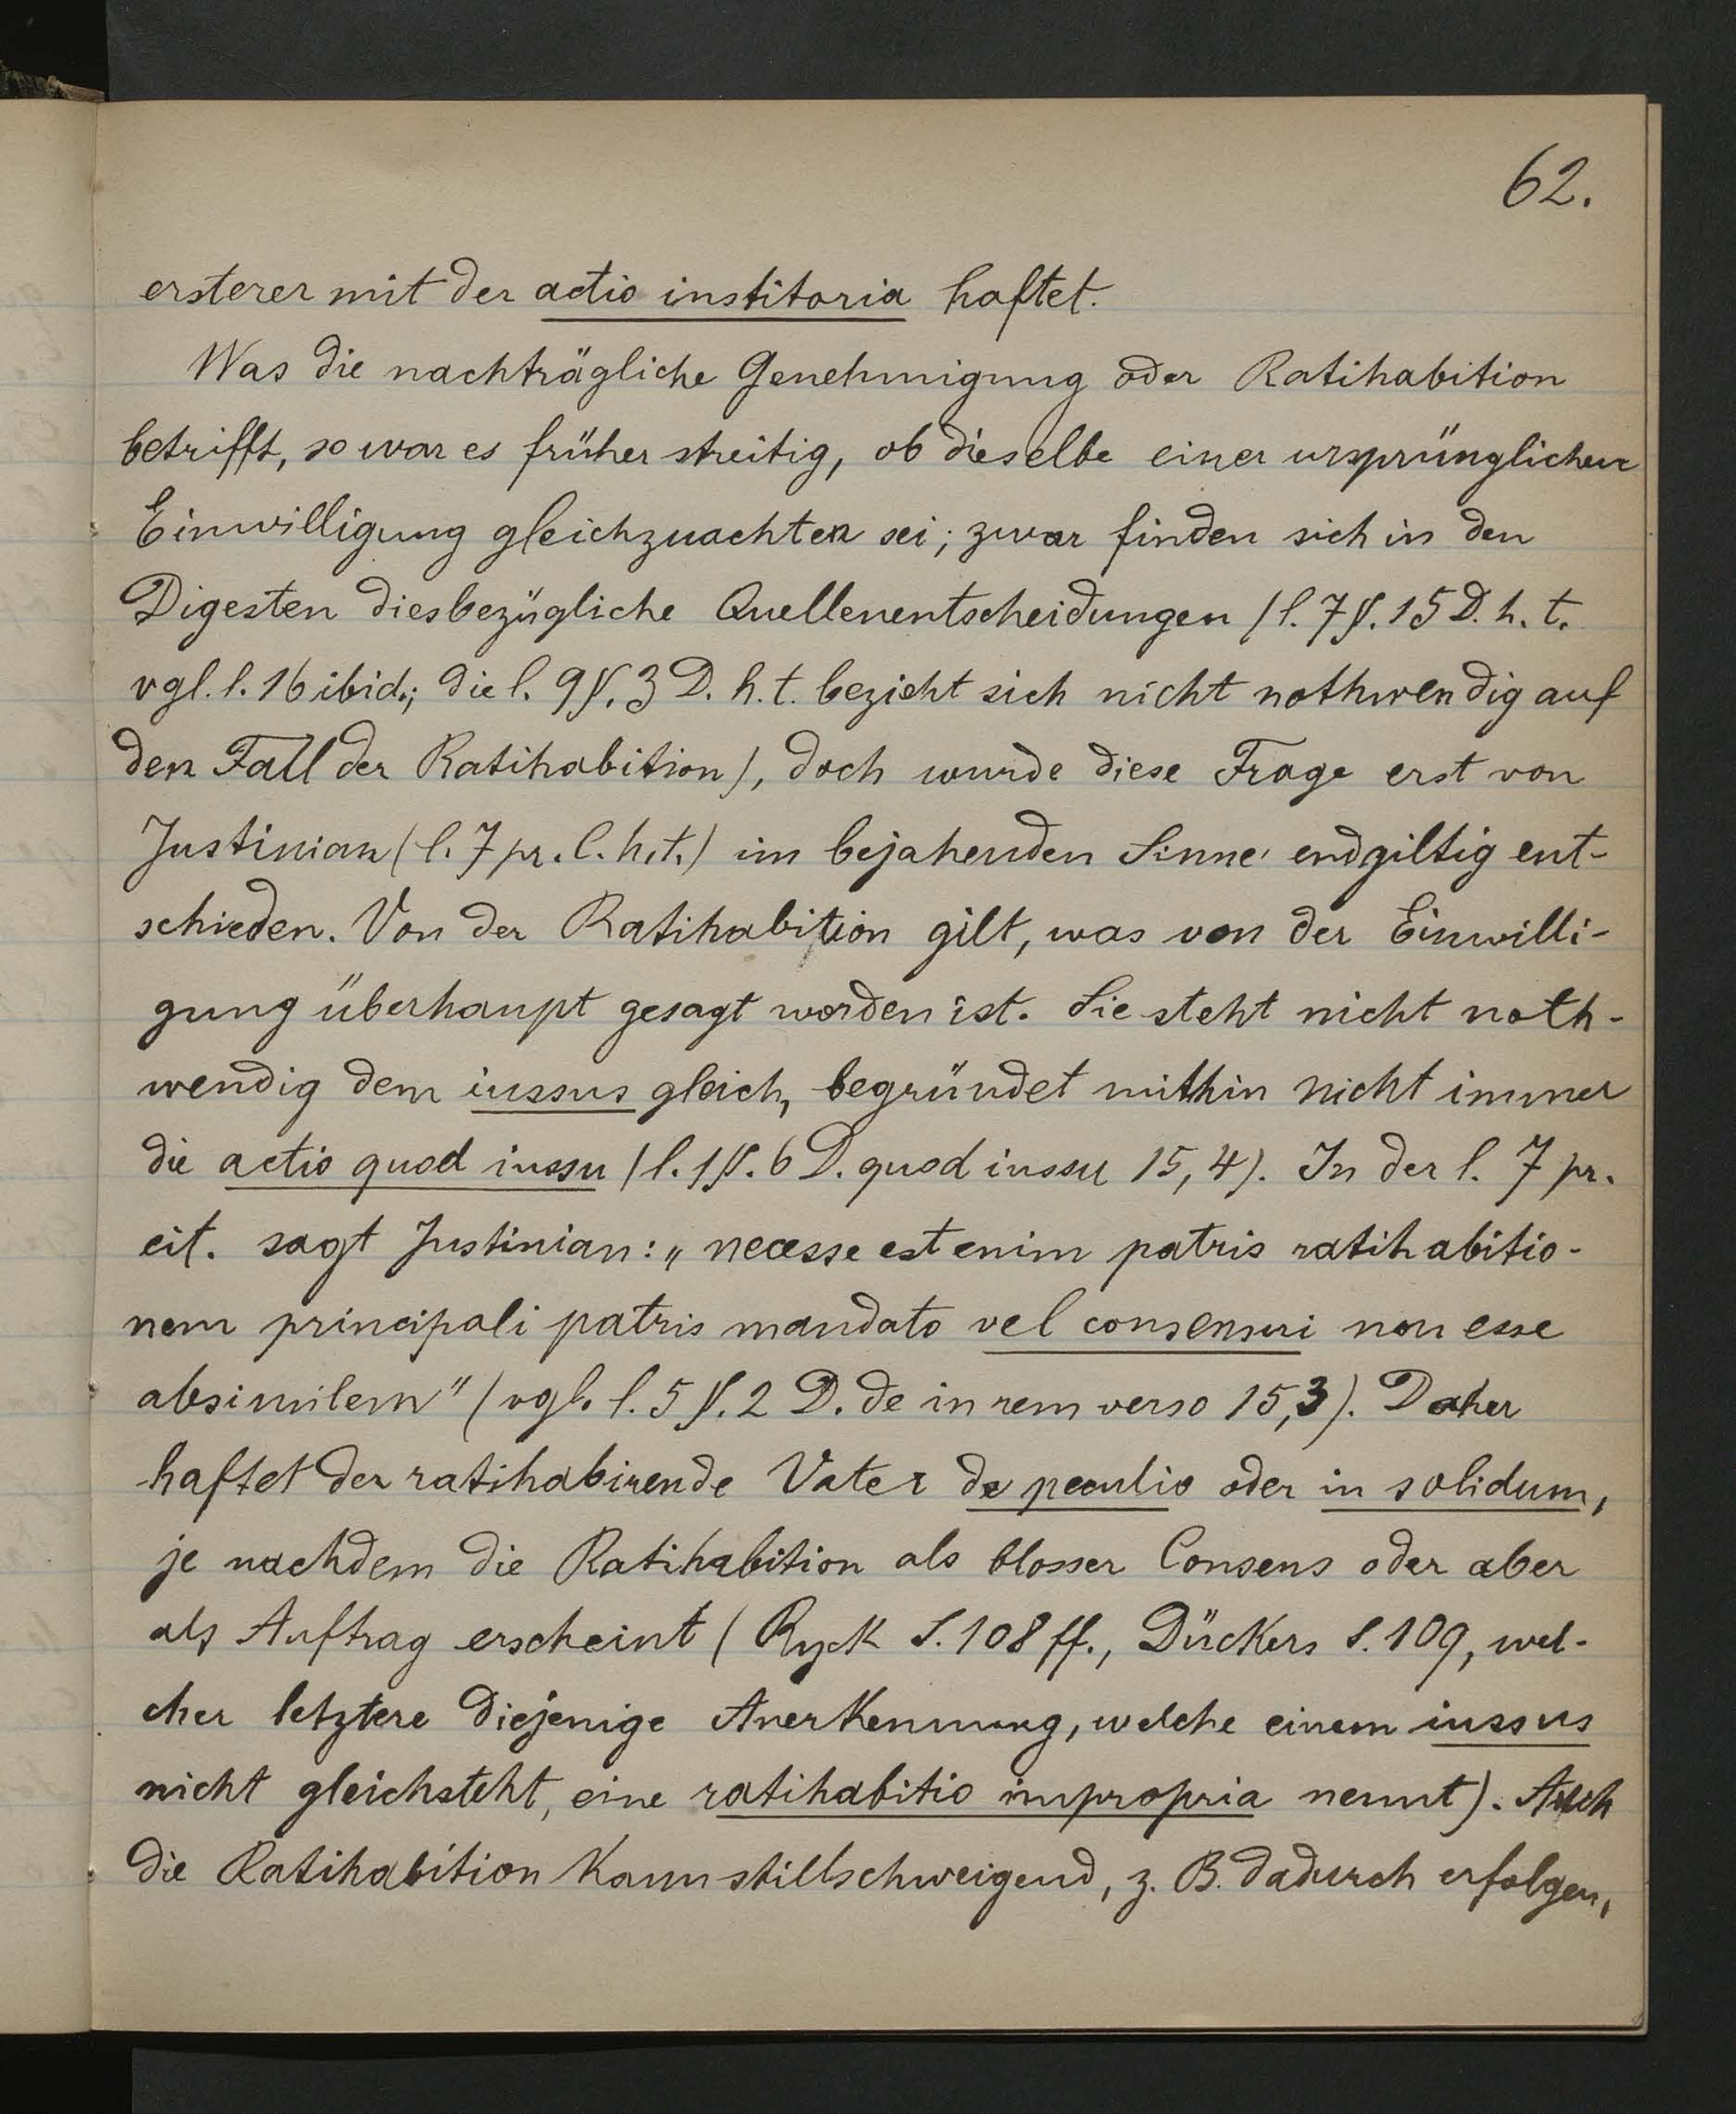 62.
ersterer mit der actio institoria haftet.
Was die nachträgliche Genehmigung oder Ratihabition
betrifft, so war es früher streitig, ob dieselbe einer ursprünglichen
Einwilligung gleichzuachten sei; zwar finden sich in den
Digesten diesbezügliche Quellenentscheidungen (l. 7 §. 15 D. h. t.
vgl. l. 16 ibid.; die l. 9 §. 3 D. h. t. bezieht sich nicht nothwendig auf
den Fall der Ratihabition), doch wurde diese Frage erst von
Justinian (l. 7 pr. C. h. t.) im bejahenden Sinne endgiltig ent-
schieden. Von der Ratihabition gilt, was von der Einwilli-
gung überhaupt gesagt worden ist. Sie steht nicht noth-
wendig dem iussus gleich, begründet mithin nicht immer
die actio quod iussu (l. 1 §. 6 D. quod iussu 15, 4). In der l. 7 pr.
cit. sagt Justinian: „necesse est enim patris ratihabitio-
nem principali patris mandato vel consensui non esse
absimilem" (vgl. l. 5 §. 2 D. de in rem verso 15, 3). Daher
haftet der ratihabirende Vater de peculio oder in solidum,
je nachdem die Ratihabition als blosser Consens oder aber
als Auftrag erscheint (Ryck S. 108 ff., Dückers S. 109, wel-
cher letztere diejenige Anerkennung, welche einem iussus
nicht gleichsteht, eine ratihabitio impropria nennt). Auch
die Ratihabition kann stillschweigend, z. B. dadurch erfolgen,